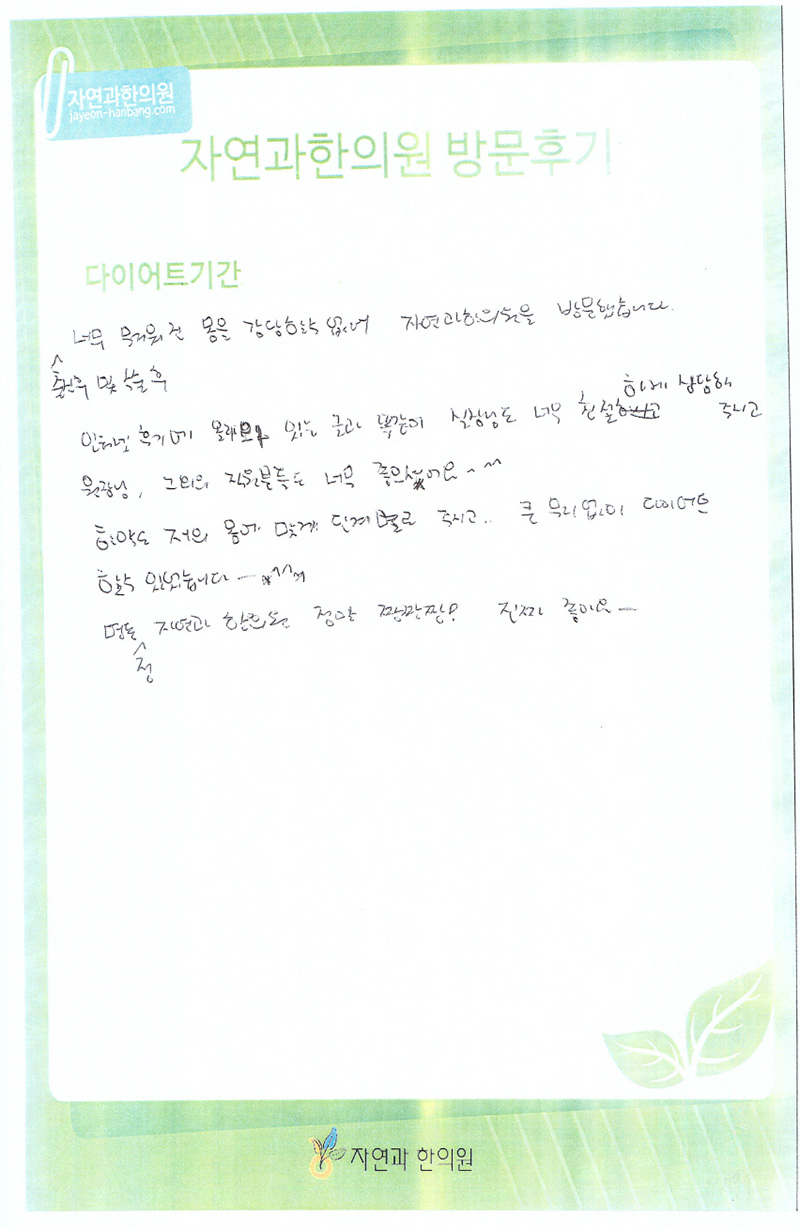 자연과한의원
jayeon-hanbang.com
자연과한의원 방문후기
다이어트기간
너무 무거워진 몸을 감당할수 없어 자연과한의원을 방문했습니다.
출산후 및 수술후
인터넷 후기에 올라와 있는 글과 똑같이 실장님도 너무 친절하게 상담해 주시고
원장님, 그외의 직원분들도 너무 좋았어요~^^
한약도 저의 몸에 맞게 단계별로 주시고.. 큰 무리 없이 다이어트
할수 있었습니다 ^^
명동 자연과 한의원 정말 짱짱짱! 진짜 좋아요~
점
자연과 한의원